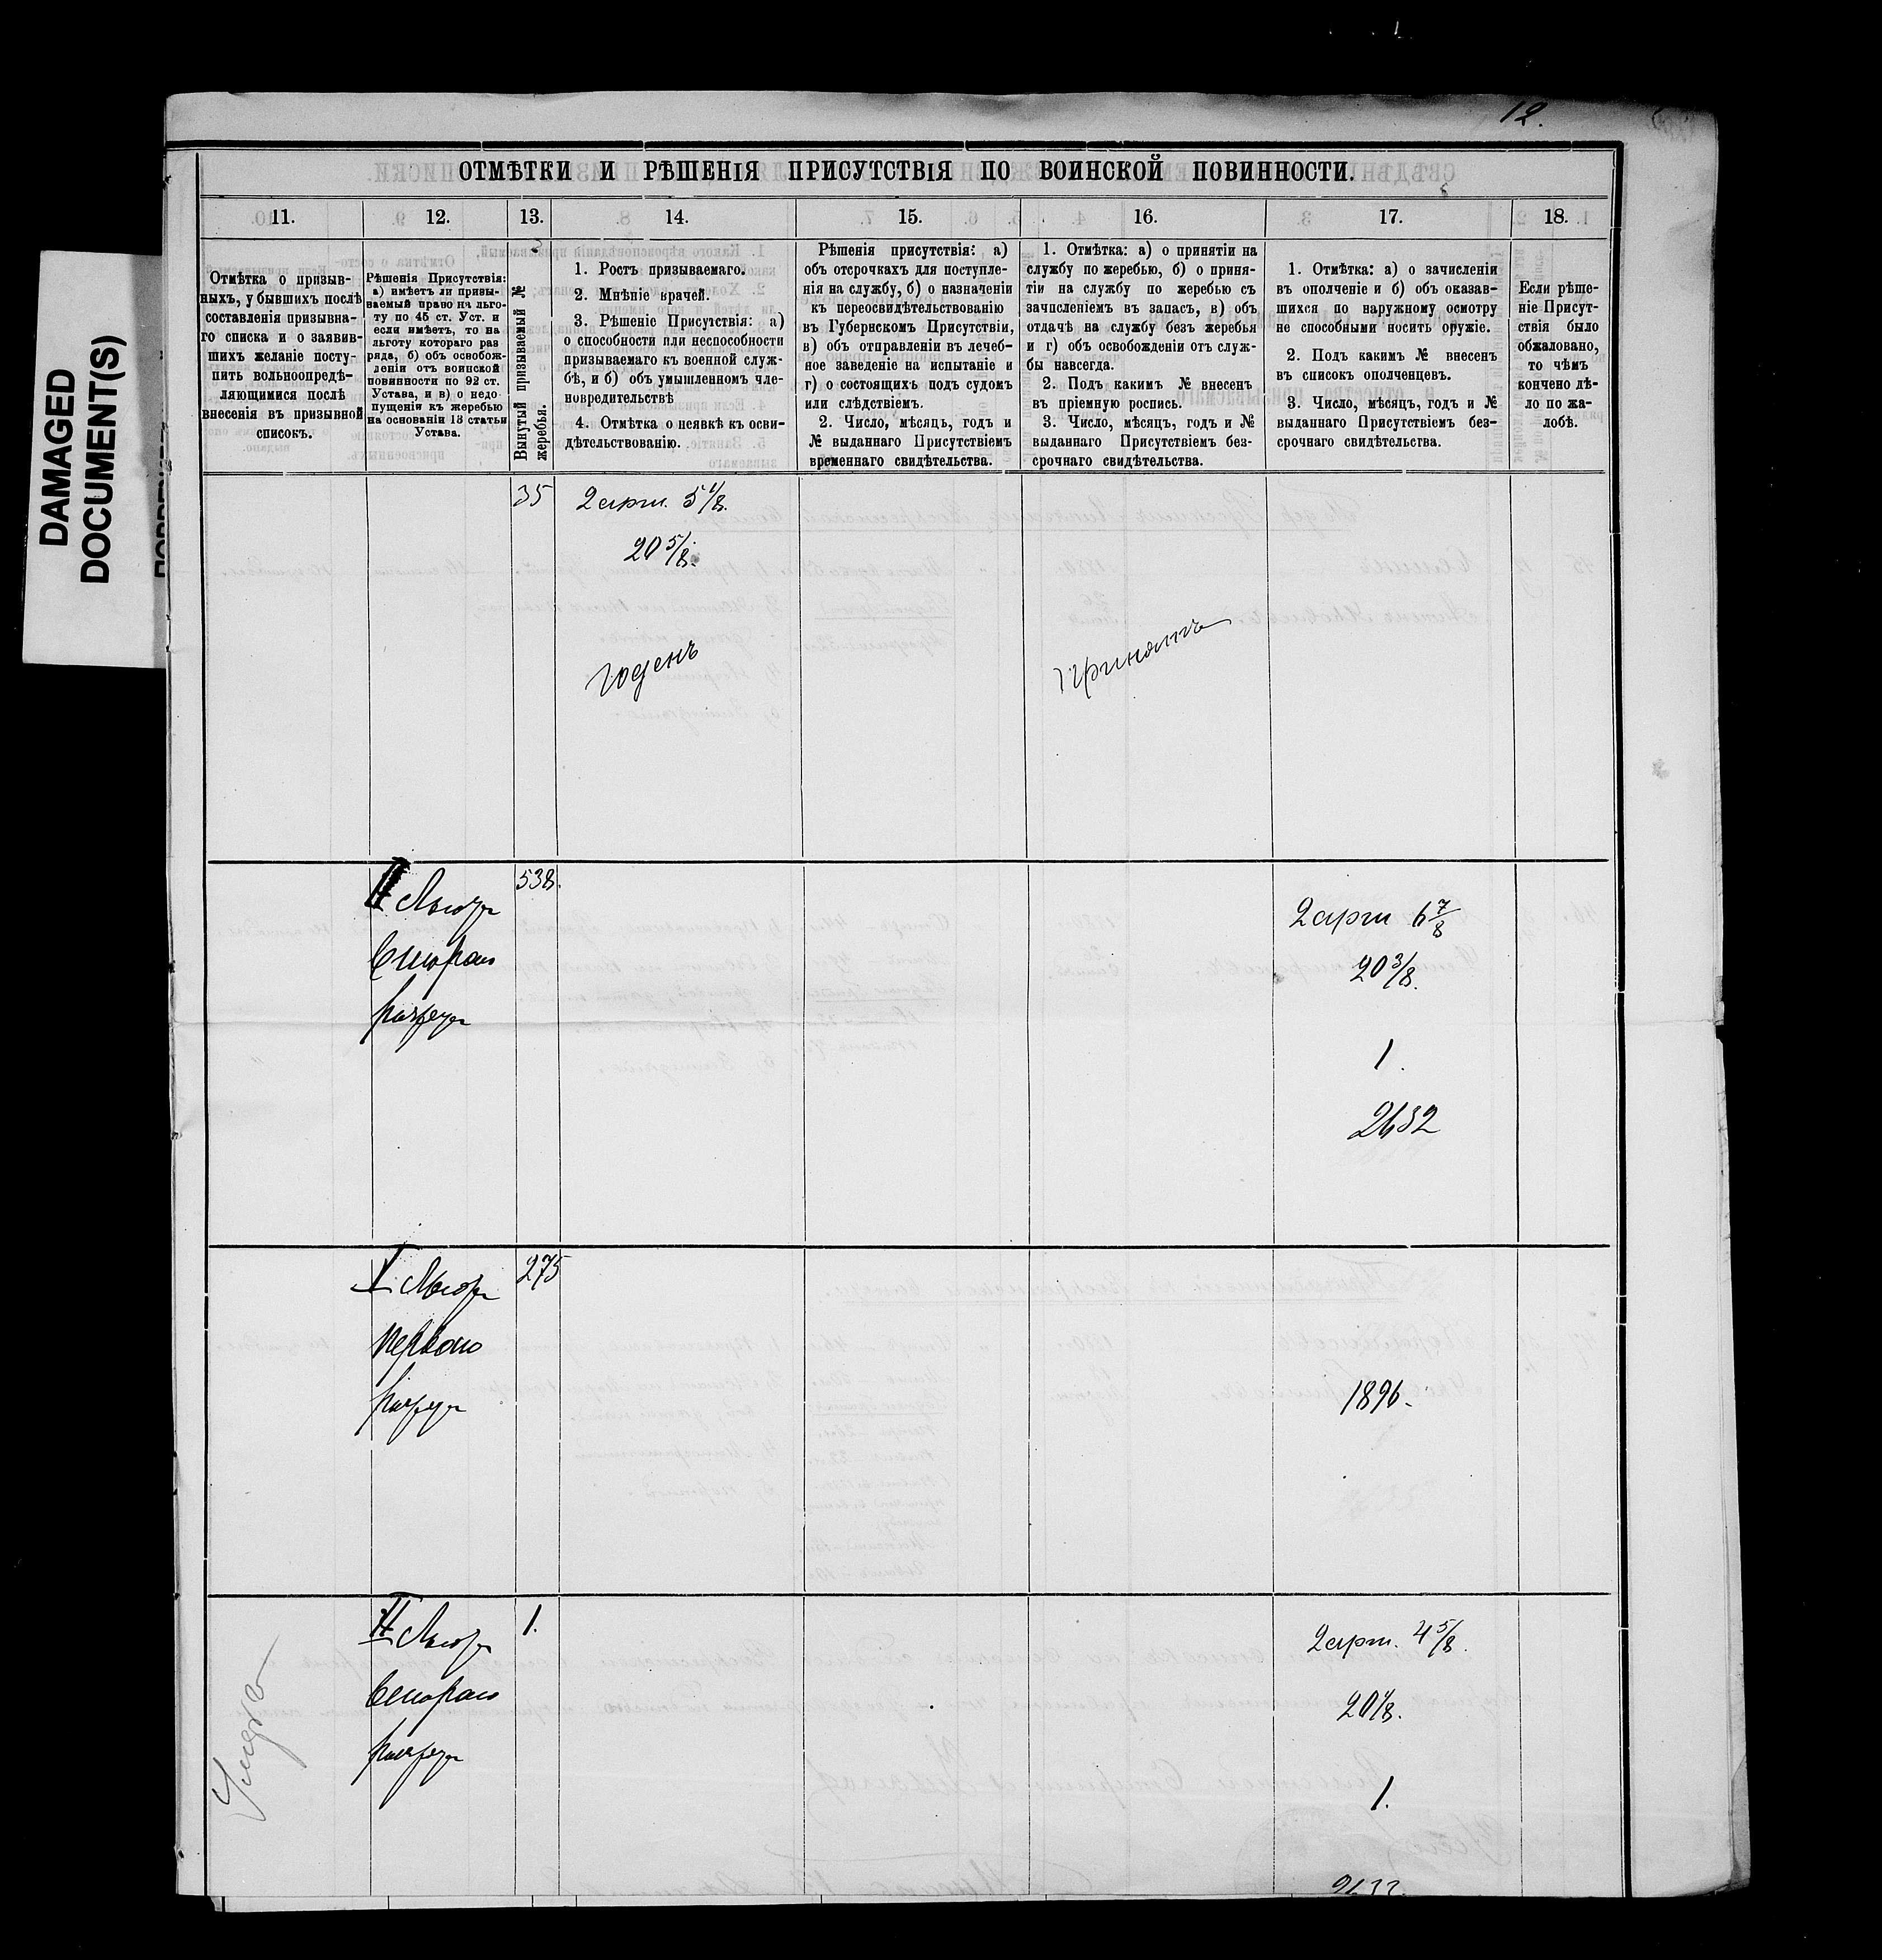 12.
DAMAGED
DOCUMENT(S)
ОТМѢТКИ И РѢШЕНІЯ ПРИСУТСТВІЯ ПО ВОИНСКОЙ ПОВИННОСТИ.
11.
12.
13.
14.
15.
16.
17.
18.
Отмѣтка о призыв-
ныхъ, у бывшихъ послѣ
составленія призывна-
го списка и о заявив-
шихъ желаніе посту-
пить вольноопредѣ-
ляющимися послѣ
внесенія въ призывной
списокъ.
Рѣшенія Присутствія:
а) имѣетъ ли призы-
ваемый право на льго-
ту по 45 ст. Уст. и
если имѣетъ, то на
льготу котораго раз
ряда, б) объ освобож-
деніи отъ воинской
повинности по 92 ст.
Устава, и в) о недо
пущеніи къ жеребью
на основаніи 13 статьи
Устава.
Вынутый призываемый №
жеребья.
1. Ростъ призываемаго.
2. Мнѣніе врачей.
3. Рѣшеніе Присутствія: а)
о способности или неспособности
призываемаго къ военной служ-
бѣ, и б) объ умышленномъ чле-
новредительствѣ
4. Отмѣтка о неявкѣ къ осви-
дѣтельствованію.
Рѣшенія присутствія: а)
объ отсрочкахъ для поступле-
нія на службу, б) о назначеніи
къ переосвидѣтельствованію
въ Губернскомъ Присутствіи,
в) объ отправленіи въ лечеб-
ное заведеніе на испытаніе и
г) о состоящихъ подъ судомъ
или слѣдствіемъ.
2. Число, мѣсяцъ, годъ и
№ выданнаго Присутствіемъ
временнаго свидѣтельства.
1. Отмѣтка: а) о принятіи на
службу по жеребью, б) о приня-
тіи на службу по жеребью съ
зачисленіемъ въ запасъ, в) объ
отдачѣ на службу безъ жеребья
и г) объ освобожденіи отъ служ-
бы навсегда.
2. Подъ какимъ № внесенъ
въ пріемную роспись.
3. Число, мѣсяцъ, годъ и №
выданнаго Присутствіемъ без-
срочнаго свидѣтельства.
1. Отмѣтка: а) о зачисленіи
въ ополченіе и б) объ оказав-
шихся по наружному осмотру
не способными носить оружіе.
2. Подъ какимъ № внесенъ
въ список ополченцевъ.
3. Число, мѣсяцъ, годъ и №
выданнаго Присутствіемъ без-
срочнаго свидѣтельства.
Если рѣше-
ніе Присут-
ствія было
обжаловано,
то чѣмъ
кончено дѣ-
ло по жа-
лобѣ.
35
2 арш. 5 1/8.
20 5/8.
годенъ
Принятъ
II Льгота
второго
разряда
538.
2 арш 6 7/8
20 3/8.
1.
2632
I Льгота
перваго
разряда
275
1896.
Умеръ
II Льгота
второго
разряда
1.
2 арш. 4 5/8.
20 1/8.
1.
2633